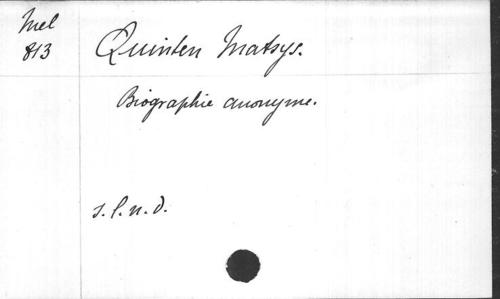 Mel
813
Quinten Matsys.
Biographie anonyme.
s. l. n. d.